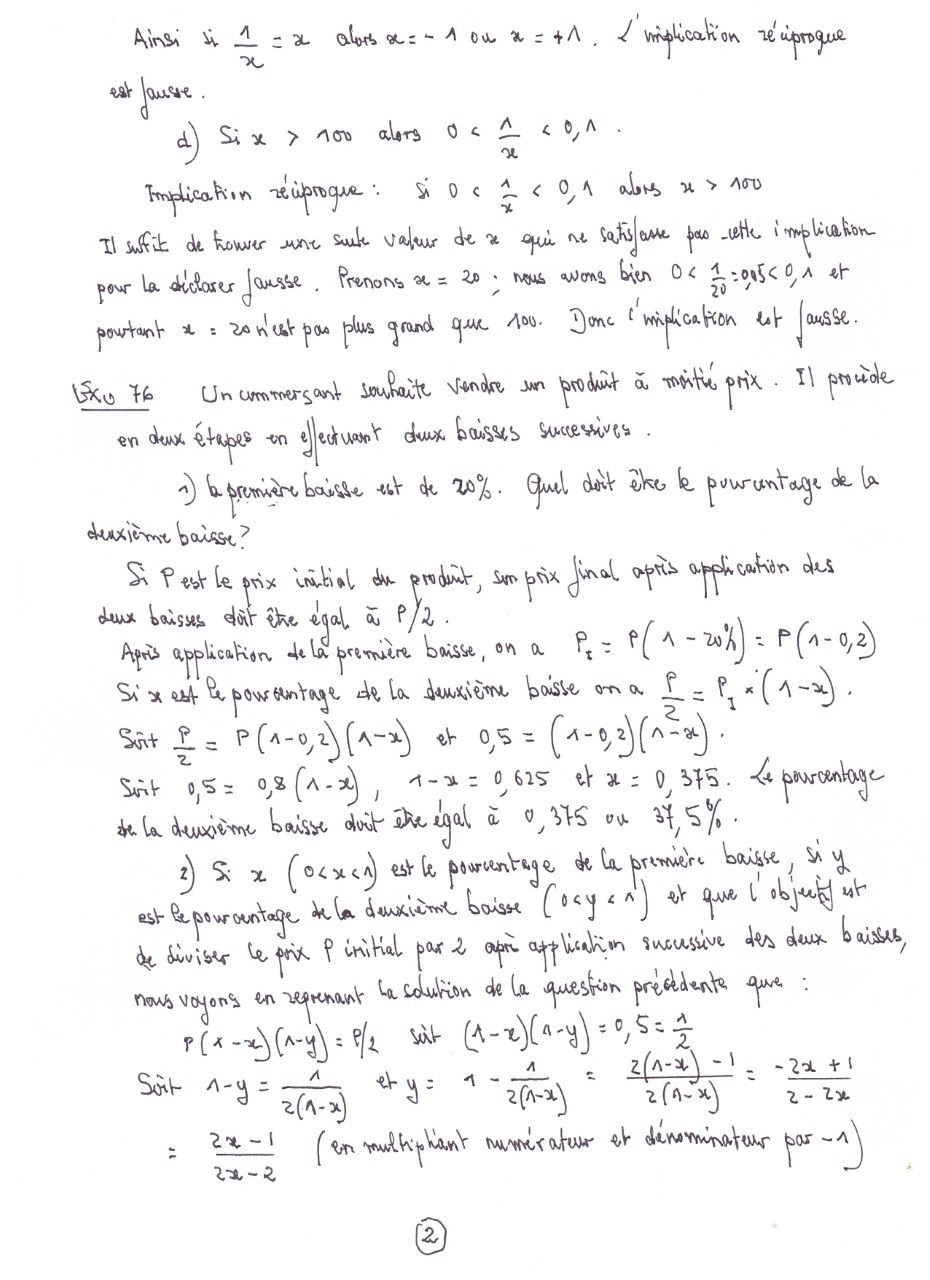 Ainsi si 1/x = x alors x = - 1 ou x = +1. L'implication réciproque
est fausse.
d) Si x > 100 alors 0 < 1/x < 0,1.
Implication réciproque : si 0 < 1/x < 0,1 alors x > 100
Il suffit de trouver une seule valeur de x qui ne satisfasse pas cette implication
pour la déclarer fausse. Prenons x = 20 ; nous avons bien 0 < 1/20 = 0,05 < 0,1 et
pourtant x = 20 n'est pas plus grand que 100. Donc l'implication est fausse.
Exo 76 Un commerçant souhaite vendre un produit à moitié prix. Il procède
en deux étapes en effectuant deux baisses successives.
1) la première baisse est de 20%. Quel doit être le pourcentage de la
deuxième baisse ?
Si P est le prix initial du produit, son prix final après application des
deux baisses doit être égal à P/2.
Après application de la première baisse, on a P_I = P(1 - 20%) = P(1-0,2)
Si x est le pourcentage de la deuxième baisse on a P/2 = P_I × (1-x).
Soit P/2 = P(1-0,2)(1-x) et 0,5 = (1-0,2)(1-x).
Soit 0,5 = 0,8(1-x), 1-x = 0,625 et x = 0,375. Le pourcentage
de la deuxième baisse doit être égal à 0,375 ou 37,5%.
2) Si x (0<x<1) est le pourcentage de la première baisse, si y
est le pourcentage de la deuxième baisse (0<y<1) et que l'objectif est
de diviser le prix P initial par 2 après application successive des deux baisses,
nous voyons en reprenant la solution de la question précédente que :
P(1-x)(1-y) = P/2 soit (1-x)(1-y) = 0,5 = 1/2
Soit 1-y = 1/2(1-x) et y = 1 - 1/2(1-x) = 2(1-x) - 1/2(1-x) = -2x + 1/2 - 2x
= 2x - 1/2x - 2 (en multipliant numérateur et dénominateur par -1)
2